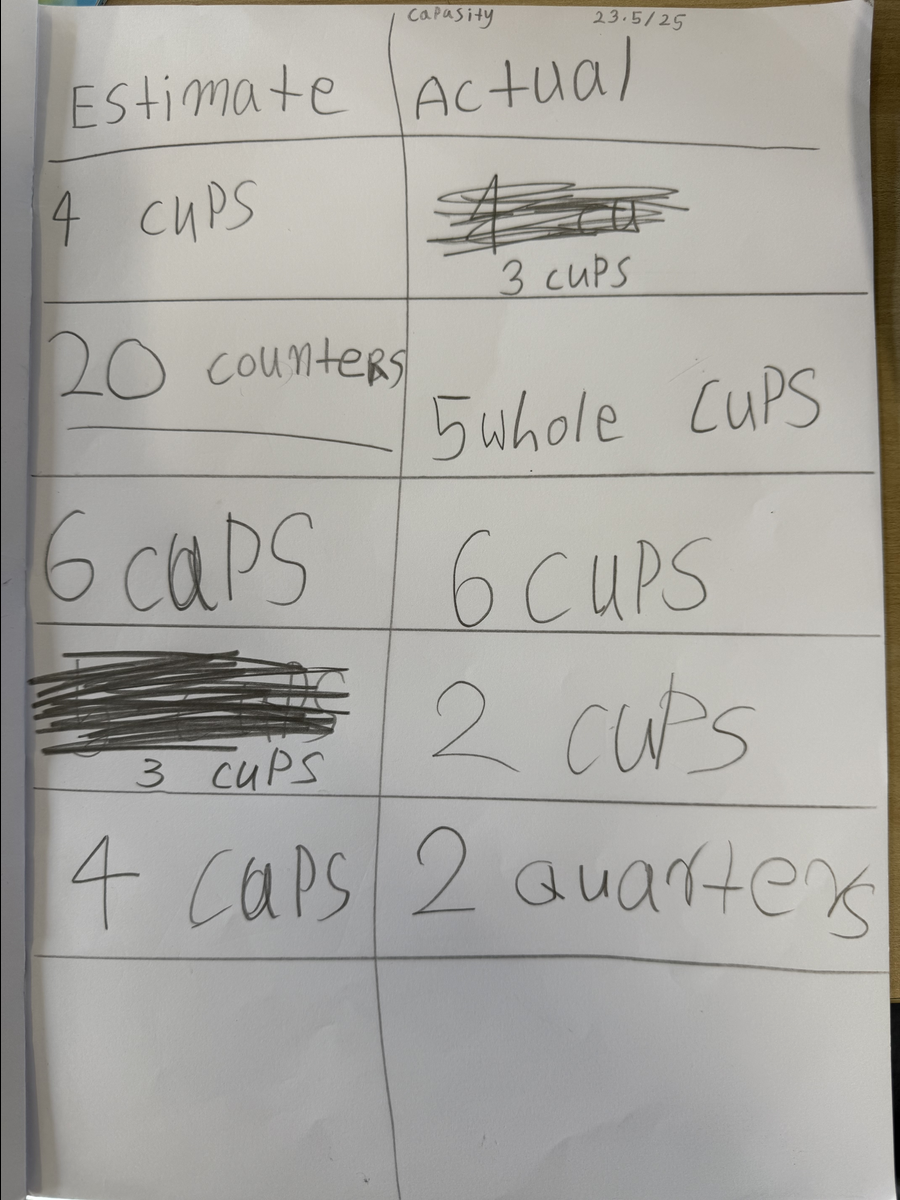 Capasity 23.5/25
Estimate Actual
4 cups
3 cups
20 counters
5 whole cups
6 caps 6 cups
3 cups 2 cups
4 caps 2 quarters